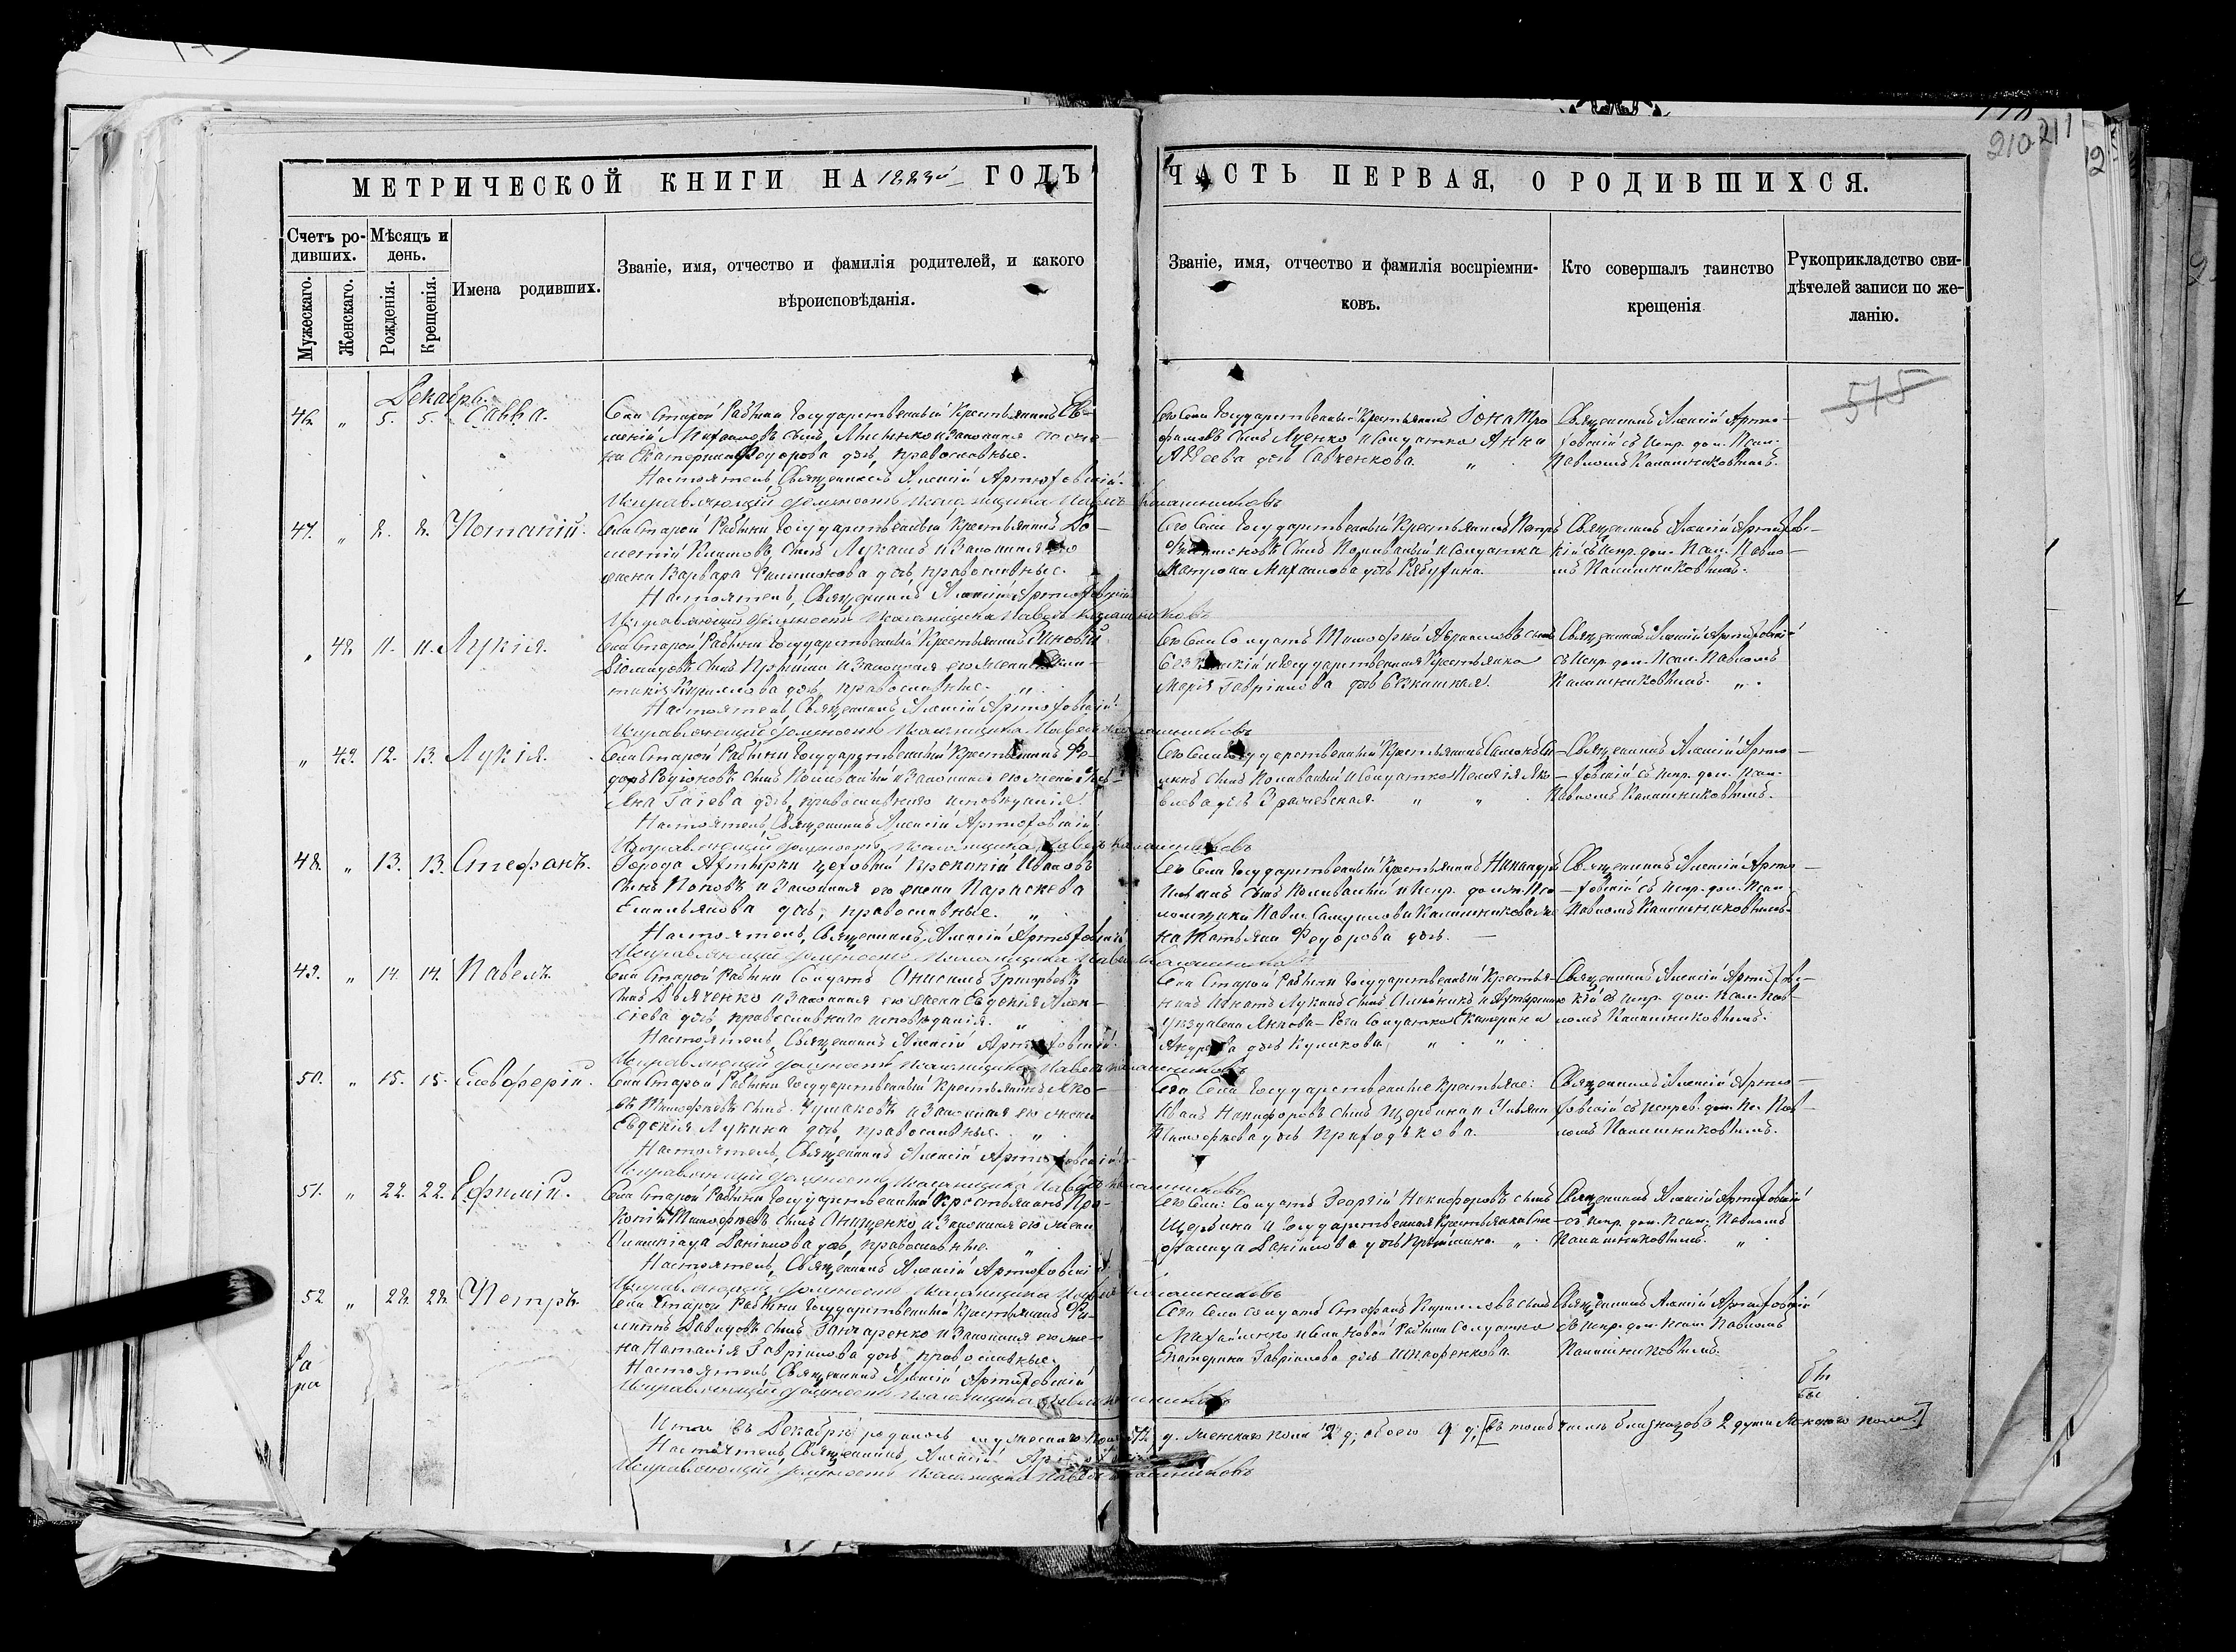 210 211
МЕТРИЧЕСКОЙ КНИГИ НА 1883й ГОДЪ
ЧАСТЬ ПЕРВАЯ, О РОДИВШИХСЯ.
Счетъ родивших.
Мужескаго.
Женскаго.
Мѣсяцъ и день.
Рожденія.
Крещенія.
Имена родивших.
Званіе, имя, отчество и фамилія родителей, и какого
вѣроисповѣданія.
Званіе, имя, отчество и фамилія воспріемни-
ковъ.
Кто совершалъ таинство
крещенія
Рукоприкладство сви-
дѣтелей записи по же-
ланію.
Декабрь.
515
46. „ 5. 5. Савва.
Села Старой Рябины Государственный Крестьянинъ Ев-
на Екатерина Федорова дочь, православные.
Настоятель, Священникъ Алексій Артюховскій.
Исправляющій должность Псаломщика Павелъ Калашниковъ
Сего Села Государственный Крестьянинъ Іона Тро
фимовъ сынъ Яценко и Солдатка Анна
Авдеева дочь Савченкова. „
Священникъ Алексій Артю-
ховскій съ Испр. дол. Псал.
Павломъ Калашниковымъ.
47. „ 8. 8. Потапій.
Села Старой Рябины Государственный Крестьянинъ До-
метій Климовъ сынъ Лукашъ и Законная его
жена Варвара Филипова дочь, православные.
Настоятель, Священникъ Алексій Артюховскій
Исправляющій должность Псаломщика Павелъ Калашниковъ
Сего Села Государственный Крестьянинъ Петръ
сынъ Поливаный и Солдатка
Матрона Михаилова дочь Рябухина.
Священникъ Алексій Артюховс-
кій съ Испр. дол. Псал. Павло-
мъ Калашниковымъ.
„ 48. 11. 11. Лукія.
Села Старой Рябины Государственный Крестьянинъ Зиновій
Кирилова дочь, православные. „
Настоятель, Священникъ Алексій Артюховскій.
Исправляющій должность Псаломщика Павелъ Калашниковъ
Сего Села Солдатъ Тимофей сынъ
и Государственная Крестьянка
Марія Гавріилова дочь
Священникъ Алексій Артюховскій
съ Испр. дол. Псал. Павломъ
Калашниковымъ. „
„ 49. 12. 13. Лукія.
Села Старой Рябины Государственный Крестьянинъ Фе-
доръ Родіоновъ сынъ Поливаный и Законная его жена
дочь, православнаго исповѣданія.
Настоятель, Священникъ Алексій Артюховскій.
Исправляющій должность Псаломщика Павелъ Калашниковъ
Сего Села Государственный Крестьянинъ
сынъ Поливаный и Солдатка Пелагія Яко-
влева дочь „ „
Священникъ Алексій Артю-
ховскій съ Испр. дол. Псал.
Павломъ Калашниковымъ.
48. „ 13. 13. Стефанъ.
Города Ахтырки цеховый Прокопій Ивановъ
Сынъ Поповъ и Законная его жена Параскева
Емельянова дочь, православные. „
Настоятель, Священникъ Алексій Артюховскій
Исправляющій должность Псаломщика Павелъ Калашниковъ
Сего Села Государственный Крестьянинъ Никандръ
сынъ Поливаный и Испр. долж. Пса-
ломщика Павла Самуилова Калашникова же-
на Татьяна Федорова дочь. —
Священникъ Алексій Артю-
ховскій съ Испр. дол. Псал.
Павломъ Калашниковымъ.
49. „ 14. 14. Павелъ.
Села Старой Рябины Солдатъ Онисимъ Григорьевъ
Сынъ Дьяченко и Законная его жена Евдокія Алек-
сіева дочь, православнаго исповѣданія. „
Настоятель, Священникъ Алексій Артюховскій.
Исправляющій должность Псаломщика Павелъ Калашниковъ
Села Старой Рябины Государственный Крестья-
нинъ Игнатъ Лукинъ сынъ и Ахтырскаго
уѣзда Села Янкова-Рога Солдатка Екатерина
Андреева дочь Куликова. „ „
Священникъ Алексій Артюховс-
кій съ Испр. дол. Псал. Пав-
ломъ Калашниковымъ.
50. „ 15. 15. Елевферій.
Села Старой Рябины Государственный Крестьянинъ Яко-
въ Тимофеевъ сынъ Чумаковъ и Законная его жена
Евдокія Лукина дочь, православные. „
Настоятель, Священникъ Алексій Артюховскій
Исправляющій должность Псаломщика Павелъ Калашниковъ
Сего Села Государственные Крестьяне:
Иванъ Никифоровъ сынъ Щербина и Ульяна
Тимофеева дочь Приходькова.
Священникъ Алексій Артю-
ховскій съ Исправ. дол. Пс. Пав-
ломъ Калашниковымъ.
51. „ 22. 22. Ефимій.
Села Старой Рябины Государственный Крестьянинъ Про-
копій Тимофеевъ сынъ Онищенко, и Законная его жена
Олимпіада Данилова дочь, православные. „
Настоятель, Священникъ Алексій Артюховскій.
Исправляющій должность Псаломщика Павелъ Калашниковъ
Сего Села: Солдатъ Георгій Никифоровъ сынъ
Щербина и Государственная Крестьянка Сте-
фанида Данилова дочь „
Священникъ Алексій Артюховскій
съ Испр. дол. Псал. Павломъ
Калашниковымъ. „
52 „ 28. 28. Петръ.
Села Старой Рябины Государственный Крестьянинъ Фи-
липъ Давидовъ сынъ Гончаренко и Законная его же-
на Наталія Гавріилова дочь, православные.
Настоятель, Священникъ Алексій Артюховскій
Исправляющій должность Псаломщика Павелъ Калашниковъ
Сего Села Солдатъ Стефанъ Кириловъ сынъ
Михайленко и Села Новой Рябины Солдатка
Екатерина Гавріилова дочь
Священникъ Алексій Артюховскій
съ Испр. дол. Псал. Павломъ
Калашниковымъ.
Итого въ Декабрѣ родилось мужескаго пола 7 д. женскаго пола 2 д; обоего 9 д; [въ томъ числѣ близнецовъ 2 души Женскаго пола.]
Настоятель, Священникъ, Алексій Артюховскій
Исправляющій должность Псаломщика Павелъ Калашниковъ